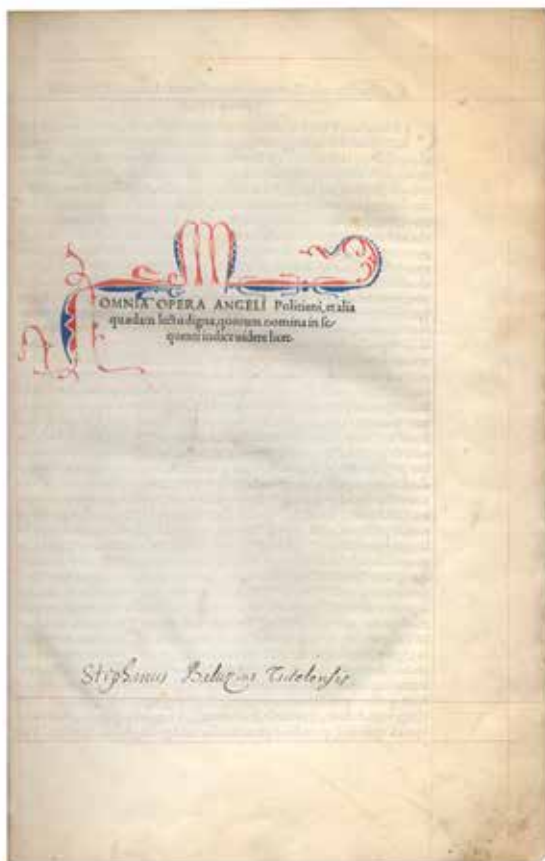 OMNIA OPERA ANGELI Politiani, et alia
quædam lectu digna, quorum nomina in se
quenti indice uidere licet.
Stephanus Baluzius Tutelensis.